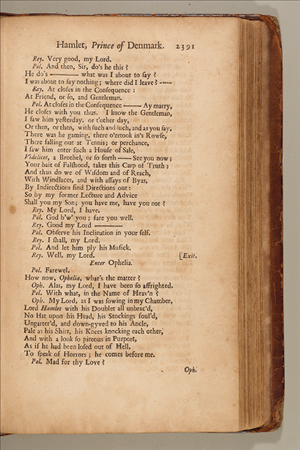 Hamlet, Prince of Denmark. 2391
Rey. Very good, my Lord.
Pol. And then, Sir, do's he this?
He do's ——— what was I about to say?
I was about to say nothing; where did I leave? ——
Rey. At closes in the Consequence:
At Friend, or so, and Gentleman.
Pol. At closes in the Consequence —— Ay marry,
He closes with you thus. I know the Gentleman,
I saw him yesterday, or t'other day,
Or then, or then, with such and such, and as you say,
There was he gaming, there o'ertook in's Rowse,
There falling out at Tennis; or perchance,
I saw him enter such a House of Sale,
Videlicet, a Brothel, or so forth —— See you now;
Your bait of Falshood, takes this Carp of Truth;
And thus do we of Wisdom and of Reach,
With Windlaces, and with assays of Byas,
By Indirections find Directions out:
So by my former Lecture and Advice
Shall you my Son; you have me, have you not?
Rey. My Lord, I have.
Pol. God b'w' you; fare you well.
Rey. Good my Lord ———
Pol. Observe his Inclination in your self.
Rey. I shall, my Lord.
Pol. And let him ply his Musick.
Rey. Well, my Lord. [Exit.
Enter Ophelia.
Pol. Farewel.
How now, Ophelia, what's the matter?
Oph. Alas, my Lord, I have been so affrighted.
Pol. With what, in the Name of Heav'n?
Oph. My Lord, as I was sowing in my Chamber,
Lord Hamlet with his Doublet all unbrac'd,
No Hat upon his Head, his Stockings foul'd,
Ungarter'd, and down-gyved to his Ancle,
Pale as his Shirt, his Knees knocking each other,
And with a look so piteous in Purport,
As if he had been losed out of Hell,
To speak of Horrors; he comes before me.
Pol. Mad for thy Love?
Oph.